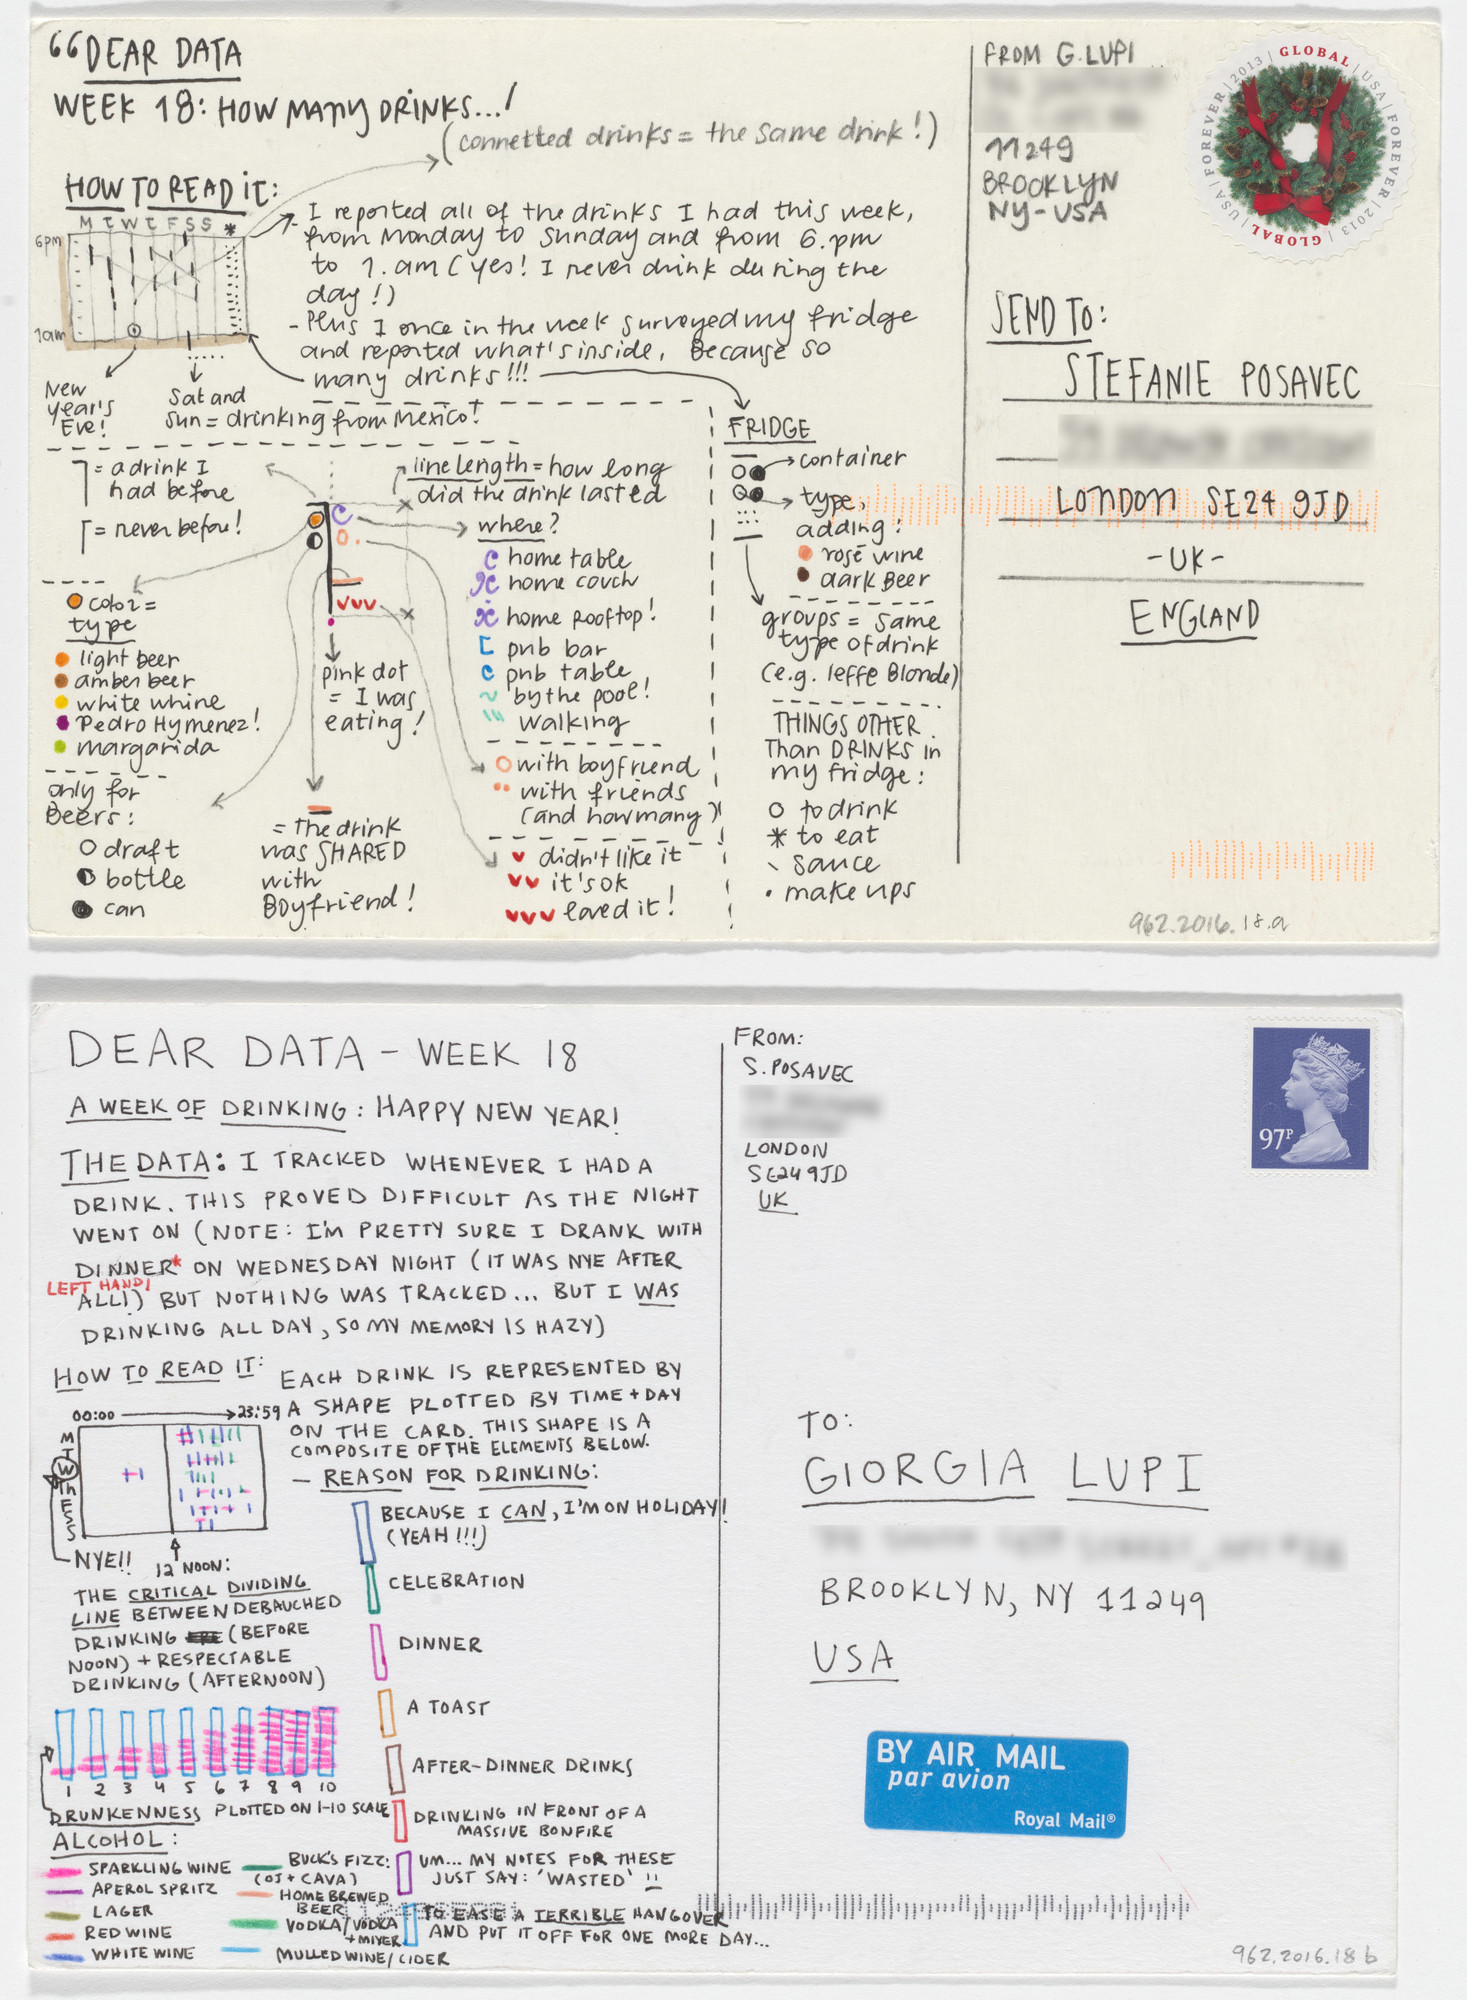 “DEAR DATA
WEEK 18: HOW MANY DRINKS...!
(connetted drinks = the same drink!)
HOW TO READ IT:
M T W T F S S *
6pm
1am
New
year's
Eve!
Sat and
sun = drinking from Mexico!
- I reported all of the drinks I had this week,
from Monday to Sunday and from 6.pm
to 1.am (yes! I never drink during the
day!)
- Plus I once in the week surveyed my fridge
and reported what's inside, Because so
many drinks!!!
= a drink I
had before
= never before!
line length = how long
did the drink lasted
where?
home table
home couch
home rooftop!
pub bar
pub table
by the pool!
walking
with boyfriend
with friends
(and how many)
didn't like it
it's ok
loved it!
color =
type
light beer
amber beer
white whine
Pedro Hymenez!
margarida
only for
Beers:
draft
bottle
can
pink dot
= I was
eating!
= the drink
was SHARED
with
Boyfriend!
FRIDGE
container
type,
adding:
rosé wine
dark Beer
groups = same
type of drink
(e.g. leffe Blonde)
THINGS OTHER
Than DRINKS in
my fridge:
to drink
* to eat
sauce
make ups
FROM G.LUPI
11249
BROOKLYN
NY-USA
GLOBAL | USA | FOREVER | 2013 | GLOBAL | USA | FOREVER | 2013 |
SEND TO:
STEFANIE POSAVEC
LONDON SE24 9JD
-UK-
ENGLAND
962.2016.18.a
DEAR DATA - WEEK 18
A WEEK OF DRINKING: HAPPY NEW YEAR!
THE DATA: I TRACKED WHENEVER I HAD A
DRINK. THIS PROVED DIFFICULT AS THE NIGHT
WENT ON (NOTE: I'M PRETTY SURE I DRANK WITH
DINNER* ON WEDNESDAY NIGHT (IT WAS NYE AFTER
LEFT HAND!
ALL!) BUT NOTHING WAS TRACKED... BUT I WAS
DRINKING ALL DAY, SO MY MEMORY IS HAZY)
HOW TO READ IT: EACH DRINK IS REPRESENTED BY
A SHAPE PLOTTED BY TIME + DAY
ON THE CARD. THIS SHAPE IS A
COMPOSITE OF THE ELEMENTS BELOW.
00:00
23:59
M
T
W
Th
F
S
S
NYE!!
12 NOON:
THE CRITICAL DIVIDING
LINE BETWEEN DEBAUCHED
DRINKING (BEFORE
NOON) + RESPECTABLE
DRINKING (AFTERNOON)
- REASON FOR DRINKING:
BECAUSE I CAN, I'M ON HOLIDAY!
(YEAH!!!)
CELEBRATION
DINNER
A TOAST
AFTER-DINNER DRINKS
DRINKING IN FRONT OF A
MASSIVE BONFIRE
UM... MY NOTES FOR THESE
JUST SAY: 'WASTED' !!
TO EASE A TERRIBLE HANGOVER
AND PUT IT OFF FOR ONE MORE DAY...
1 2 3 4 5 6 7 8 9 10
DRUNKENNESS PLOTTED ON 1-10 SCALE
ALCOHOL:
SPARKLING WINE
APEROL SPRITZ
LAGER
RED WINE
WHITE WINE
BUCK'S FIZZ:
(OJ + CAVA)
HOME BREWED
BEER
VODKA/VODKA
+ MIXER
MULLED WINE/CIDER
FROM:
S. POSAVEC
LONDON
SE24 9JD
UK
97P
TO:
GIORGIA LUPI
BROOKLYN, NY 11249
USA
BY AIR MAIL
par avion
Royal Mail®
962.2016.18 b